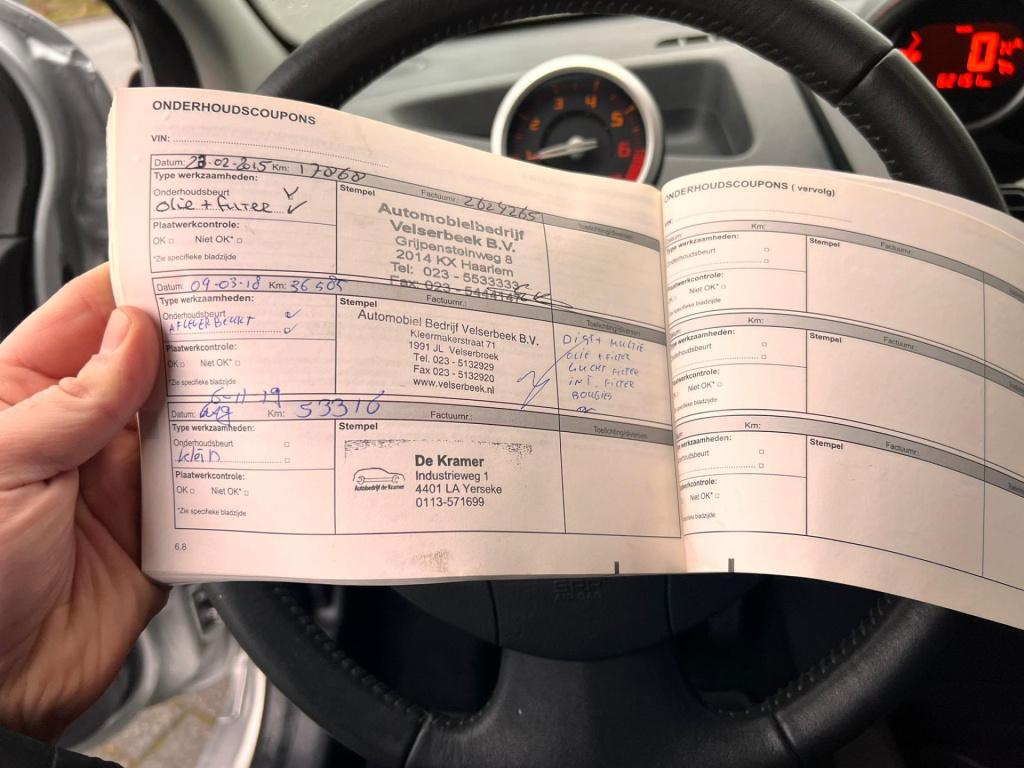 ONDERHOUDSCOUPONS
VIN:
Datum: 23-02-2015 Km: 17868 Factuurnr.: 2624265
Type werkzaamheden:
Onderhoudsbeurt
Olie + FILTER
Plaatwerkcontrole:
OK Niet OK*
*Zie specifieke bladzijde
Stempel
Automobielbedrijf
Velserbeek B.V.
Grijpensteinweg 8
2014 KX Haarlem
Tel: 023 - 5533333
Fax: 023 -
Toelichting/diversen
Datum: 09-03-18 Km: 36585 Factuurnr.:
Type werkzaamheden:
Onderhoudsbeurt
AFLEVERBEURT
Plaatwerkcontrole:
OK Niet OK*
*Zie specifieke bladzijde
Stempel
Automobiel Bedrijf Velserbeek B.V.
Kleermakerstraat 71
1991 JL Velserbroek
Tel. 023 - 5132929
Fax 023 - 5132920
www.velserbeek.nl
Toelichting/diversen
DIST + MULTIE
OLIE + FILTER
LUCHT FILTER
INT. FILTER
BOUGIES
6-11-19
Datum: Km: 53316 Factuurnr.:
Type werkzaamheden:
Onderhoudsbeurt
klein
Plaatwerkcontrole:
OK Niet OK*
*Zie specifieke bladzijde
Stempel
Autobedrijf de Kramer
De Kramer
Industrieweg 1
4401 LA Yerseke
0113-571699
Toelichting/diversen
6.8
ONDERHOUDSCOUPONS ( vervolg)
VIN:
Datum: Km: Factuurnr.:
Type werkzaamheden:
Onderhoudsbeurt
Plaatwerkcontrole:
OK Niet OK*
*Zie specifieke bladzijde
Stempel
Km: Factuurnr.:
Type werkzaamheden:
Onderhoudsbeurt
Plaatwerkcontrole:
OK Niet OK*
*Zie specifieke bladzijde
Stempel
Km: Factuurnr.:
werkzaamheden:
Onderhoudsbeurt
Plaatwerkcontrole:
OK Niet OK*
specifieke bladzijde
Stempel
2 3 4 5 6
0
AIRBAG